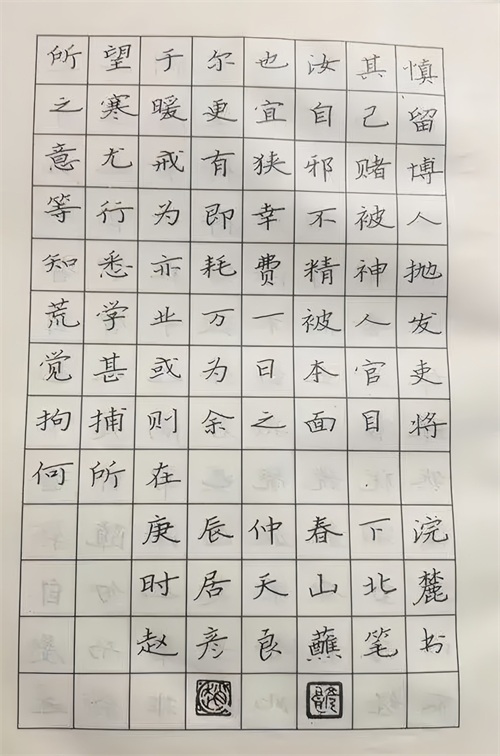 所望于尔也汝其慎
之寒暖更宜自己留
意尤戒有狭邪赌博
等行为即幸不被人
知悉亦耗费精神抛
荒学业万一被人发
觉甚或为日本官吏
拘捕则余之面目将
何所在
庚辰仲春下浣
时居天山北麓
赵彦良蘸笔书